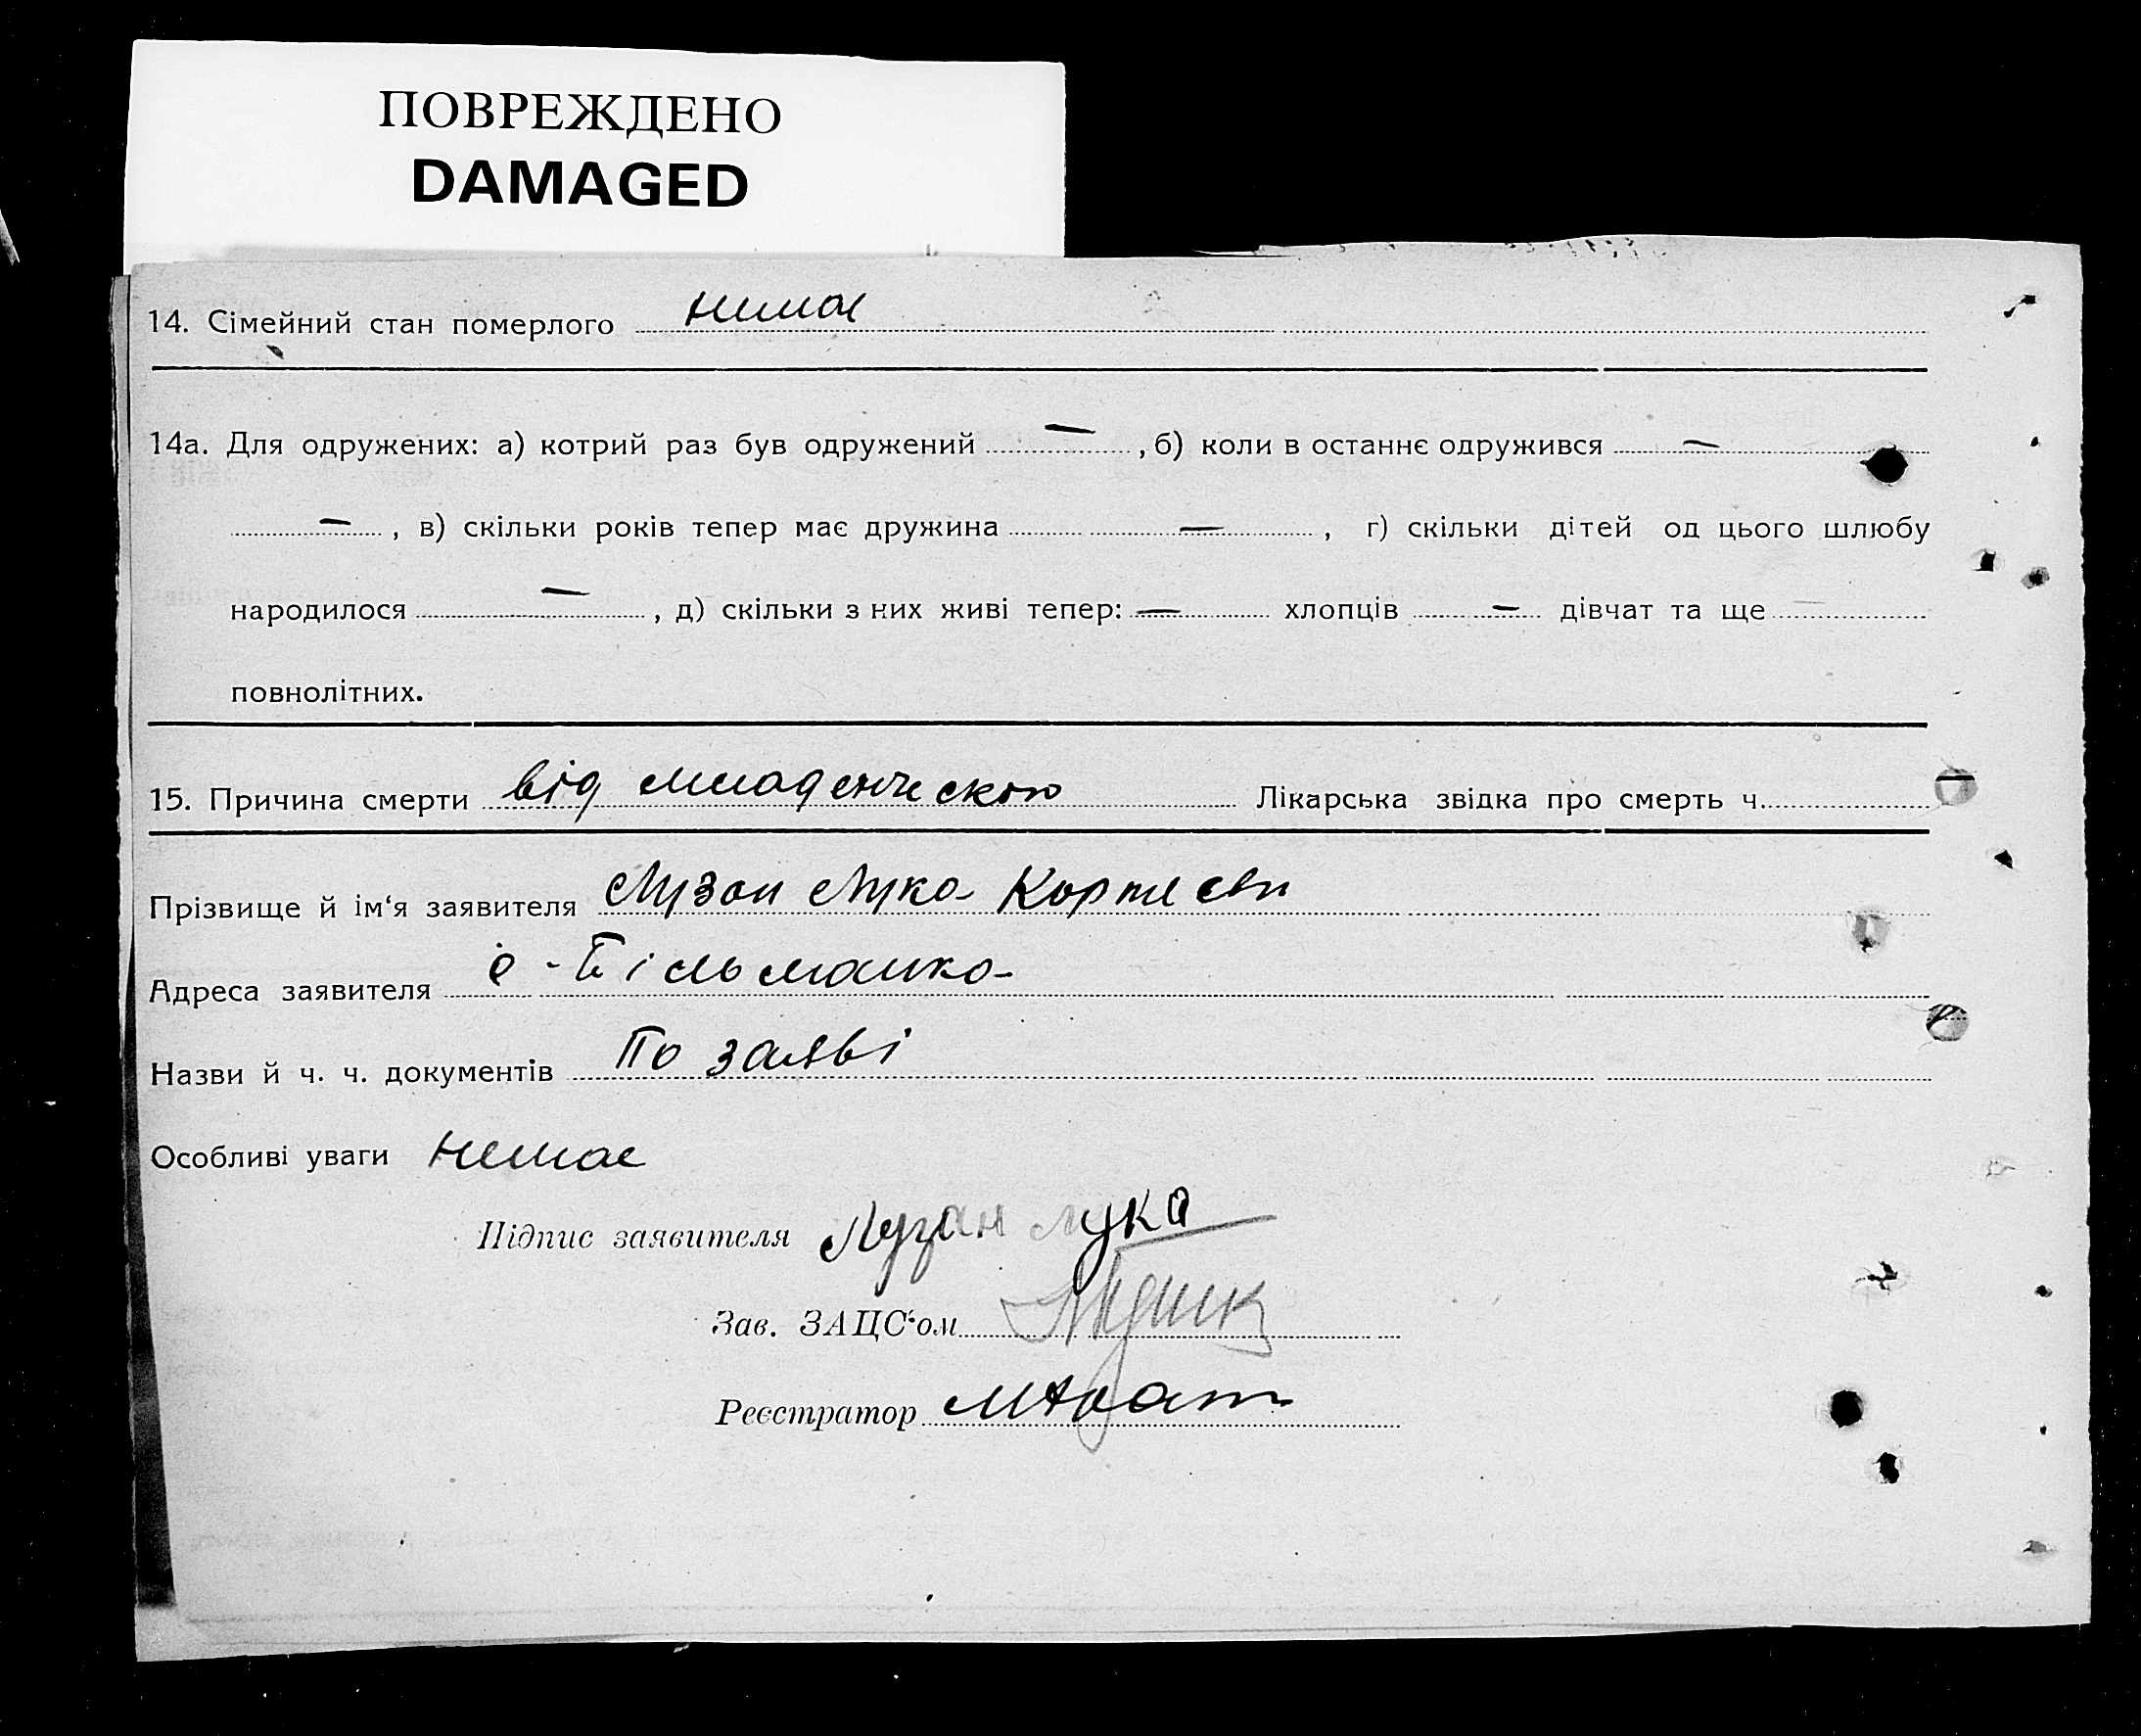 ПОВРЕЖДЕНО
DAMAGED
14. Сімейний стан померлого немає
14а. Для одружених: а) котрий раз був одружений — , б) коли в останнє одружився —
— , в) скільки років тепер має дружина — , г) скільки дітей од цього шлюбу
народилося — , д) скільки з них живі тепер: — хлопців — дівчат та ще
повнолітних.
15. Причина смерти від младенческою Лікарська звідка про смерть ч.
Прізвище й ім‘я заявителя Лузан Лука
Адреса заявителя с-Більманка
Назви й ч. ч. документів По заяві
Особливі уваги немає
Підпис заявителя Лузан Лука
Зав. ЗАЦС‘ом
Реєстратор